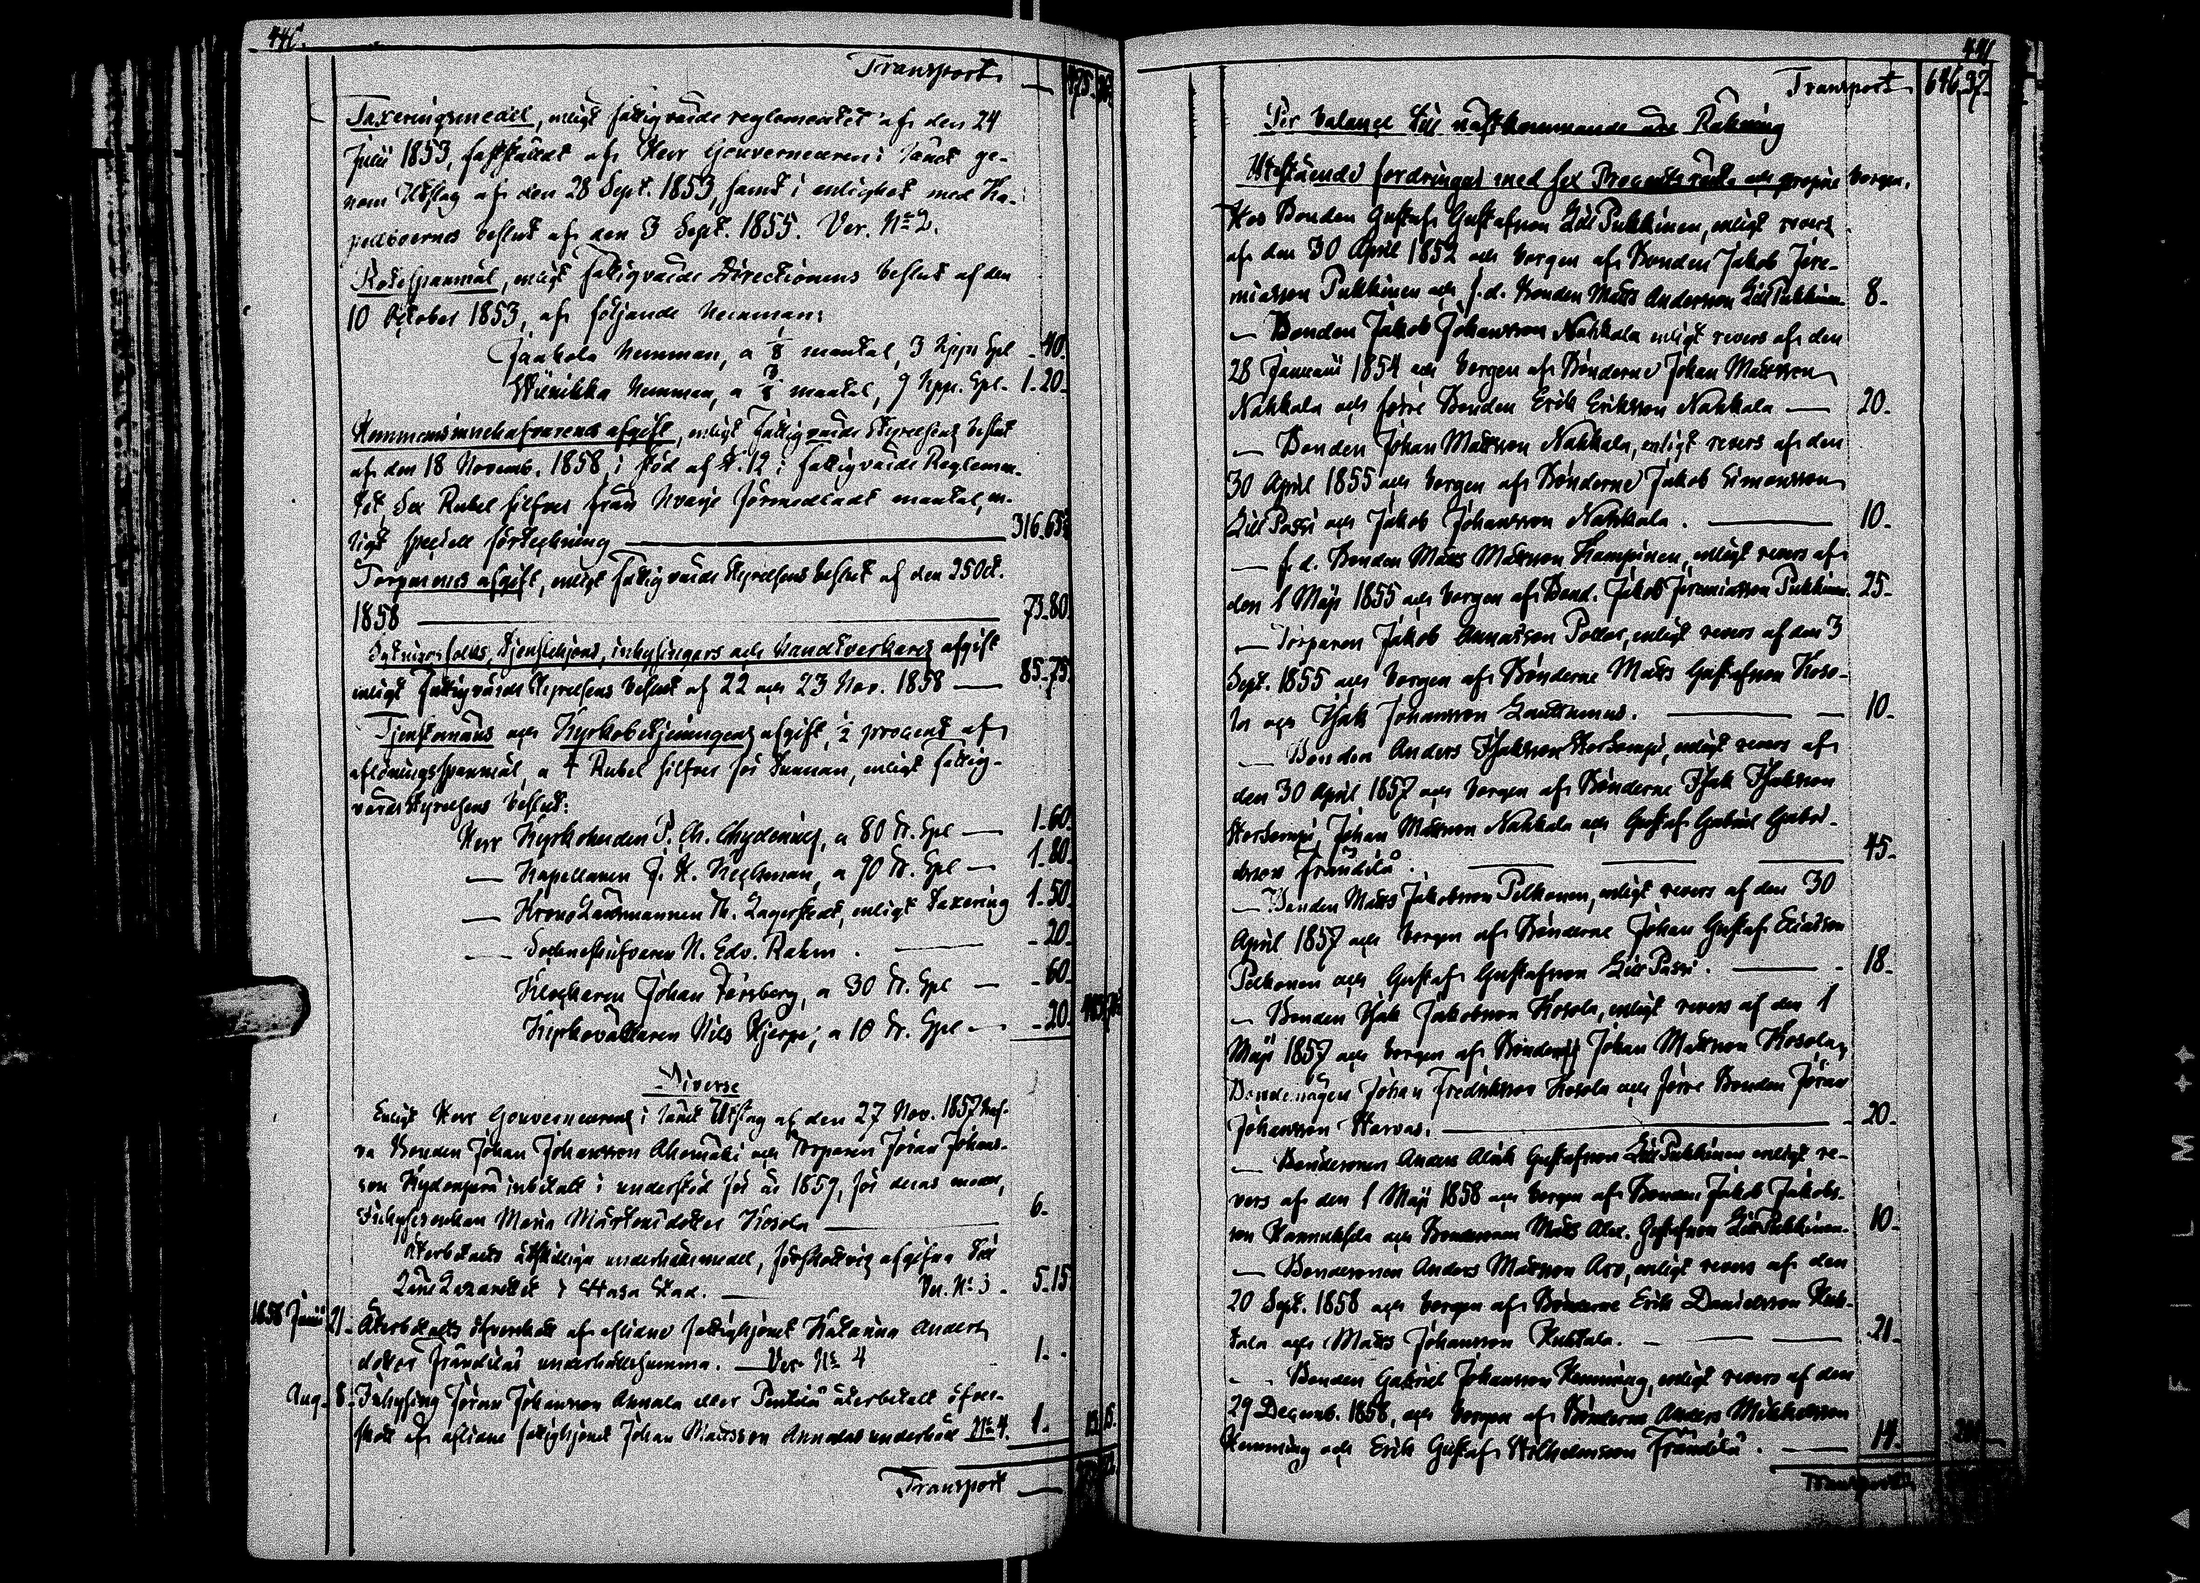 440.
Transport
Taxeringsmedel, enligt fattigvårds reglementet af den 24
Julii 1853, fastställdt af Herr Gouverneuren i Länet ge-
nom Utslag af den 28 Sept. 1853, samt i enlighet med Ka-
pellboernes beslut af den 3 Sept. 1855. Ver. No 2.
Rotespanmål, enligt fattigvårds Directionens beslut af den
10 October 1853, af följande Hemman:
Jaakola Hemman, a 1/8 mantal, 3 kpp. Spl - 40.
Hemman, a 3/8 mantal, 9 kpp. Spl. 1.20.
Hemmansinnehafvarenas afgift, enligt Fattigvårds Styrelsens beslut
af den 18 Novemb. 1858, i stöd af §. 12 i fattigvårds Reglemen-
tet, Sex Rubel silfver från hvarje förmedladt mantal, en-
ligt speciell förteckning 316.65
Torparenes afgift, enligt fattigvårds Styrelsens beslut af den 25 Oct.
1858 73.80.
Sytningsfolks, tjenstehjons, inhysingars och handtverkares afgift
enligt Fattigvårds Styrelsens beslut af 22 och 23 Nov. 1858 — 85.75.
Tjenstemäns och Kyrkobetjeningens afgift, 1/2 procent af
aflöningsspanmål, a 4 Rubel silfver för tunnan, enligt fattig-
vårdsstyrelsens beslut:
Herr Kyrkoherden P. Ch. Chydenius, a 80 Tr. Spl — 1.60.
— Kapellanen J. H. Heckman, a 90 Tr. Spl — 1.80.
— Krono Länsmannen Th. Lagerstedt, enligt Taxering 1.50.
— Sockneskrifvaren N. Edv. Rahm. - 20.
Klockaren Johan Forsberg, a 30 Tr. Spl — - 60.
Kyrkovaktaren Nils Hjerpe, a 10 Tr. Spl — - 20.
Diverse
Enligt Herr Gouverneurens i Länet Utslag af den 27 Nov. 1857 haf-
va Bonden Johan Johansson Ahomäki och Torparen Jöran Johans-
son Kydonperä inbetalt i understöd för år 1859, för deras moder,
Inhyseenkan Maria Mårtensdotter Kosola 6.
Återbetalte åtskilliga underhållsmedel, förskottsvis afgifne till
Läns Lazarettet i Wasa Stad. Ver. No 3. 5.15
1858 Junii 21. Återbetalts öfverskott af aflidne fattighjonet Katarina Anders
dotter Frändiläs underhållssumma. — Ver. No 4 1. -
Aug. 8. Inhysing Jöran Johansson Annala eller Penttilä återbetalt öfver-
skott af aflidne fattighjonet Johan Mattsson Annalas underhåll No 4. 1.
Transport
441
Transport 646.97.
Per balance till nästkommande års Räkning
Utestående fordringar med sex Procents ränta och proprie borgen.
Hos Bonden Gustaf Gustafsson Lill Pukkinen, enligt revers
af den 30 April 1852 och borgen af Bonden Jakob Jere-
miasson Pukkinen och f.d. Bonden Matts Andersson Lill Pukkinen 8.
— Bonden Jakob Johansson Nahkala enligt revers af den
28 Januarii 1854 och borgen af Bönderne Johan Mattsson
Nahkala och förre Bonden Erik Eriksson Nahkala — 20.
— Bonden Johan Mattsson Nahkala, enligt revers af den
30 April 1855 och borgen af Bönderne Jakob Simonsson
Lill Passi och Jakob Johansson Nahkala. 10.
— f.d. Bonden Matts Mattsson Kampinen, enligt revers af
den 1 Maji 1855 och borgen af Bond. Jakob Jeremiasson Pukkinen. 25.
— Torparen Jakob Annasson Pollar, enligt revers af den 3
Sept. 1855 och borgen af Bönderne Matts Gustafsson Koso-
la och Isak Johansson Lauttamus. 10.
— Bonden Anders Isaksson Korkempi, enligt revers af
den 30 April 1857 och borgen af Bönderne Isak Isaksson
Korkempi, Johan Mattsson Nahkala och Gustaf Gabriel Gabri-
elsson Frändilä. 45.
— Bonden Matts Jakobsson Pelkonen, enligt revers af den 30
April 1857 och borgen af Bönderne Johan Gustaf Eliasson
Pelkonen och Gustaf Gustafsson Lill Passi. 18.
— Bonden Isak Jakobsson Kosola, enligt revers af den 1
Maji 1857 och borgen af Bönderne Johan Mattsson Kosola,
Bondemågen Johan Fredriksson Kosola och förre Bonden Jöran
Johansson Karvas. 20.
— Bondesonen Anders Gustafsson Lill Pukkinen enligt re-
vers af den 1 Maji 1858 och borgen af Bonden Jakob Jakobs-
son och Bondesonen Matts Alex. Gustafsson Lill Pukkinen. 10.
— Bondesonen Anders Mattsson Aro, enligt revers af den
20 Sept. 1858 och borgen af Bönderne Erik Danielsson Huh-
tala och Matts Johansson Huhtala. 21.
— Bonden Gabriel Johansson Hemming, enligt revers af den
29 Decemb. 1858, och borgen af Bönderne Anders Mickelsson
Hemming och Erik Gustaf Wilhelmsson Frändilä. 14.
Transport
FILM